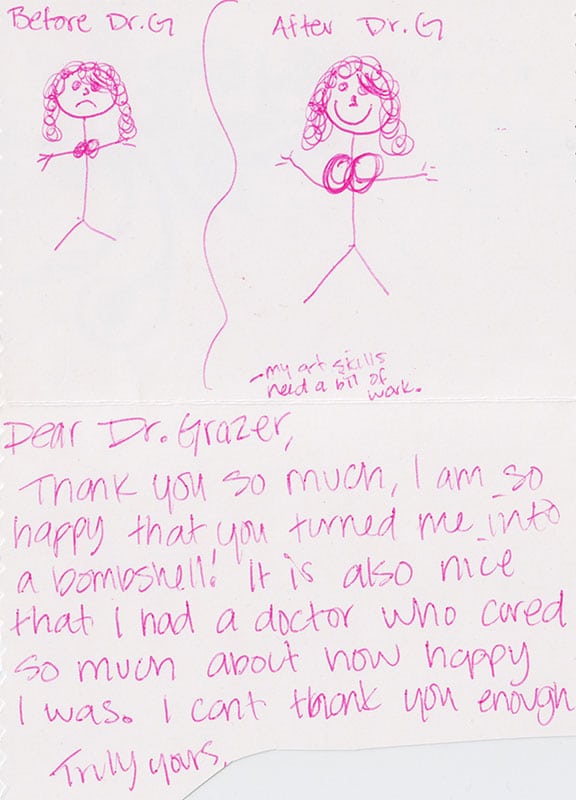 Before Dr. G
After Dr. G
-my art skills
need a bit of
work.
Dear Dr. Grazer,
Thank you so much, I am so
happy that you turned me into
a bombshell! It is also nice
that I had a doctor who cared
so much about how happy
I was. I cant thank you enough
Truly yours,